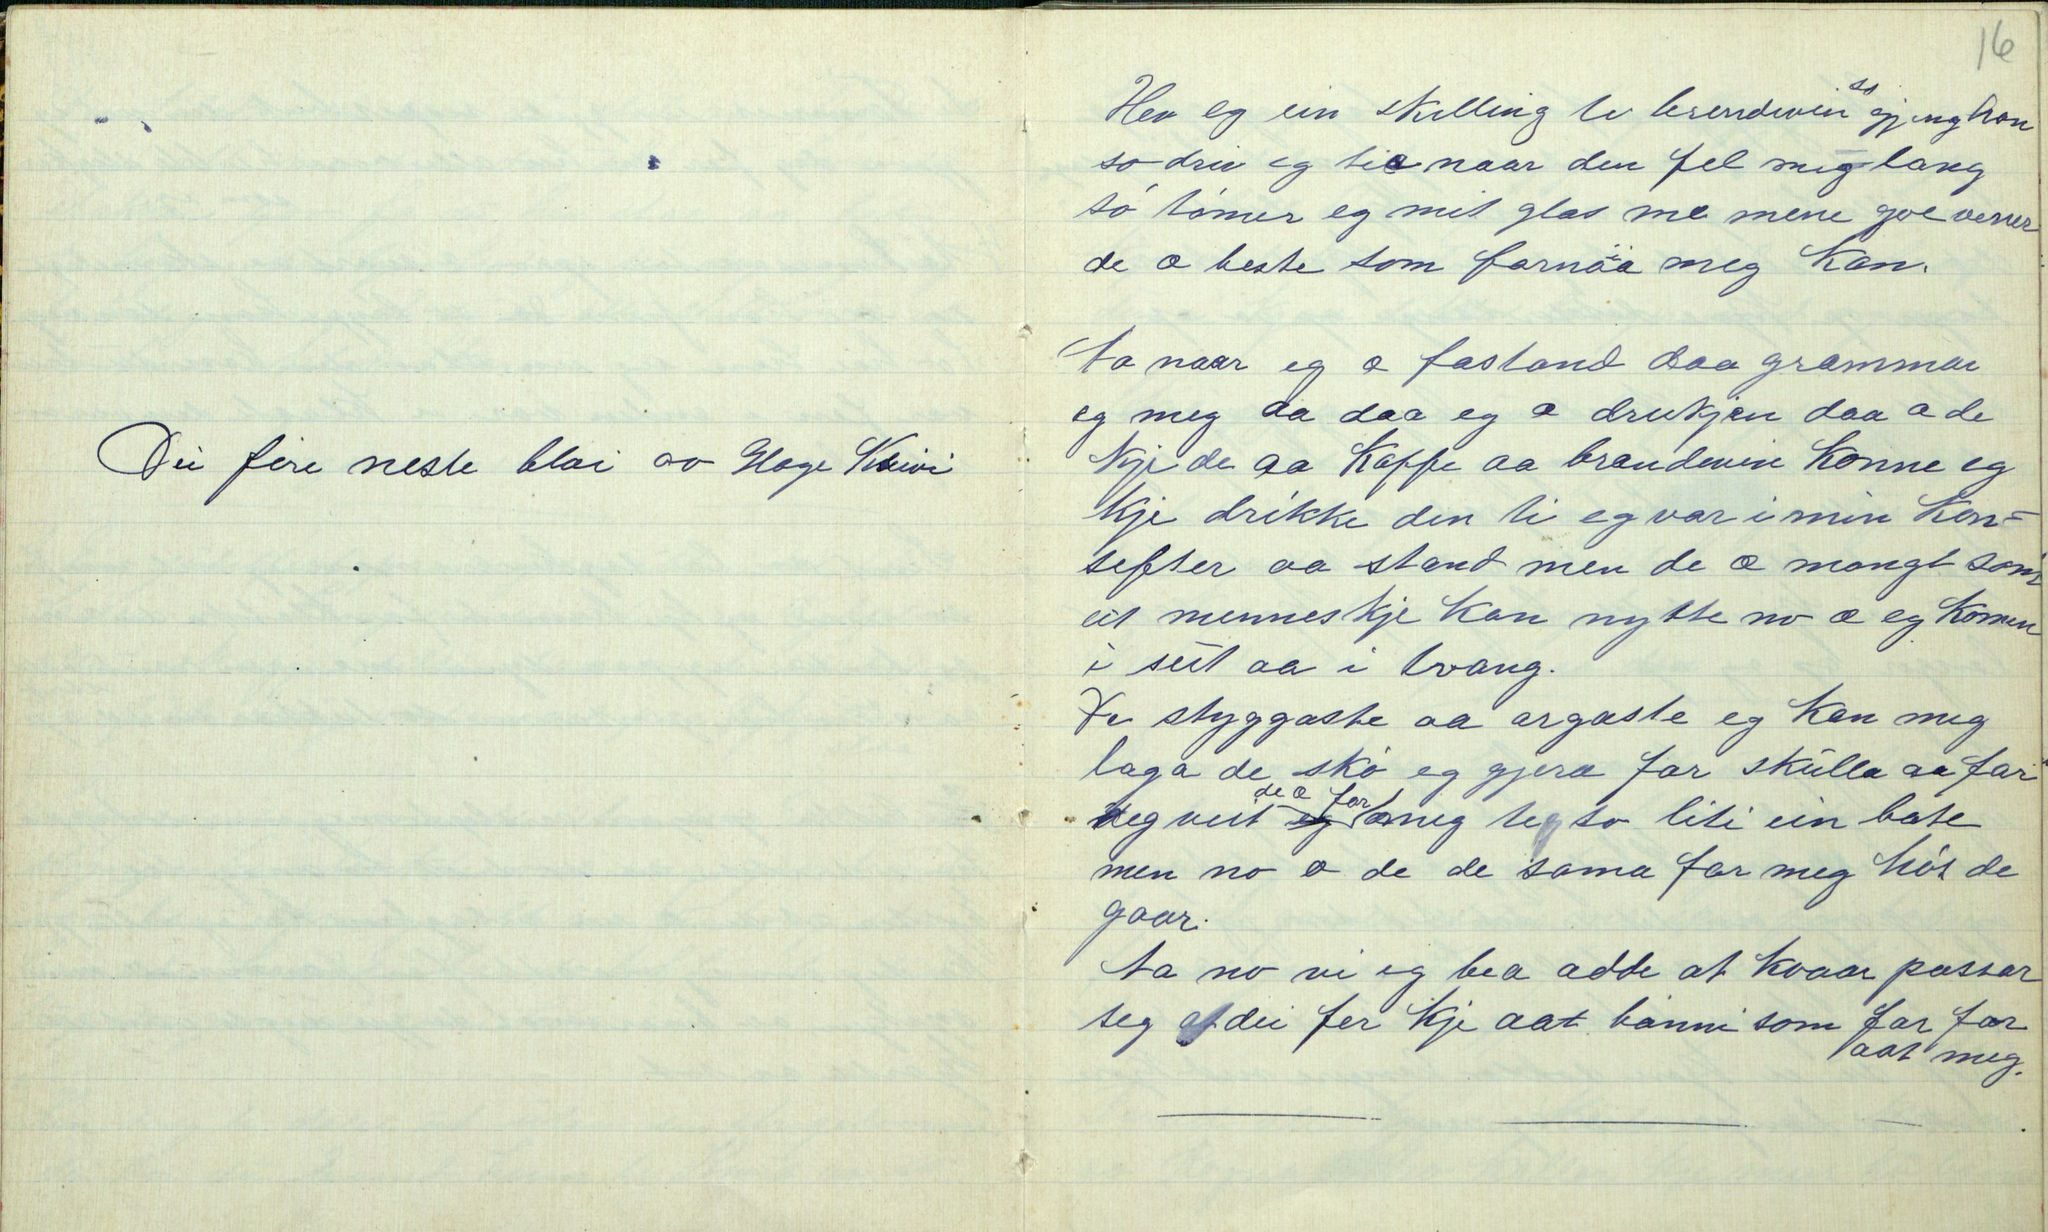 Dei fire neste blai av Hoge Kvivi
16
Hev eg ein skilling te brendevin so gjeng han
so driv eg tie naar den fel mig lang
só tómer eg mit glas me mene goe verner
de æ beste som fornøia meg kan.
Ta naar eg æ fastand daa grammar
eg meg aa daa eg æ drukjen daa æ de
kje de aa kaffe aa brandevin konne eg
kje drikke den ti eg var i min kon-
sefter aa stand men de æ mangt som
eit menneskje kan nytte no æ eg komen
i sút aa i tvang.
De styggaste aa argaste eg kan meg
laga de skó eg gjera for skulla aa for
eg veit de æ for meg te so liti ein bate
men no æ de de sama for meg hót de
gaar.
Ta no vi eg bea adde at kvaar passar
seg at dei fer kje aat bånni som far for
aat meg.